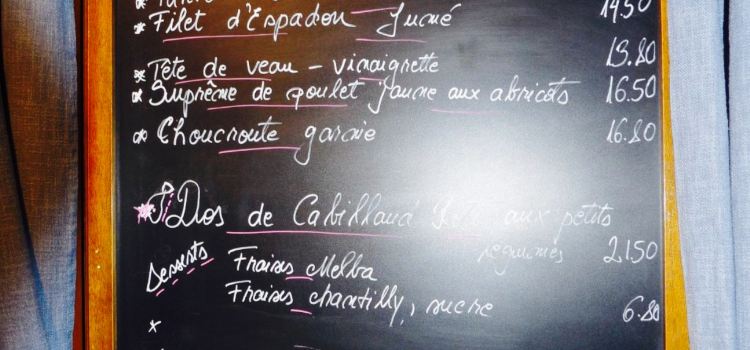 14.50
* Filet d'Espadon fumé
* Tête de veau - vinaigrette 13.80
* Suprême de poulet jaune aux abricots 16.50
* Choucroute garnie 16.80
* Dos de Cabillaud aux petits
légumes 21.50
Desserts Fraises Melba
Fraises chantilly, sucre 6.80
*